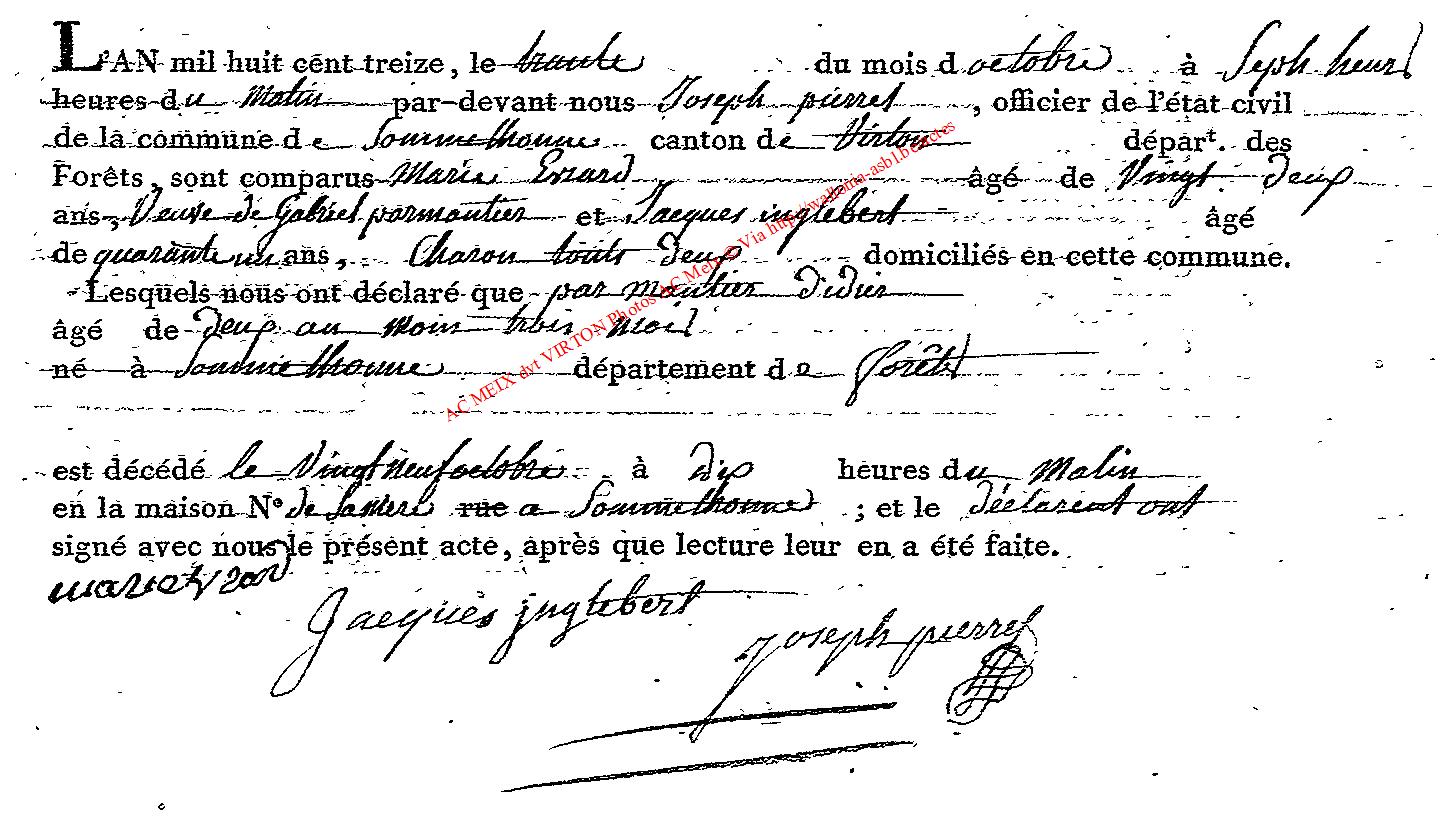 L'AN mil huit cent treize, le trante du mois d octobre à Seph heurs
heures du Matin par-devant nous Joseph pierret, officier de l'état civil
de la commune de Sommethonne canton de Virton départ. des
Forêts, sont comparus Marie Evrard âgé de Vingt Deux
ans, Veuve de Gabriel parmantier et Jacques inglebert âgé
de quarante un ans, Charon touts Deux domiciliés en cette commune.
Lesquels nous ont déclaré que parmentier Didier
âgé de Deux an Moin trois Mois
né à Sommethonne département de forêts
est décédé le Vingt neuf octobre à Dix heures du Matin
en la maison N° de Sa Mere rue a Sommethonne ; et le déclarent ont
signé avec nous le présent acte, après que lecture leur en a été faite.
marie evrard
Jacques jnglebert
Joseph pierret
AC MEIX dvt VIRTON Photos AC Meix © Via http://wallonia-asbl.be/actes